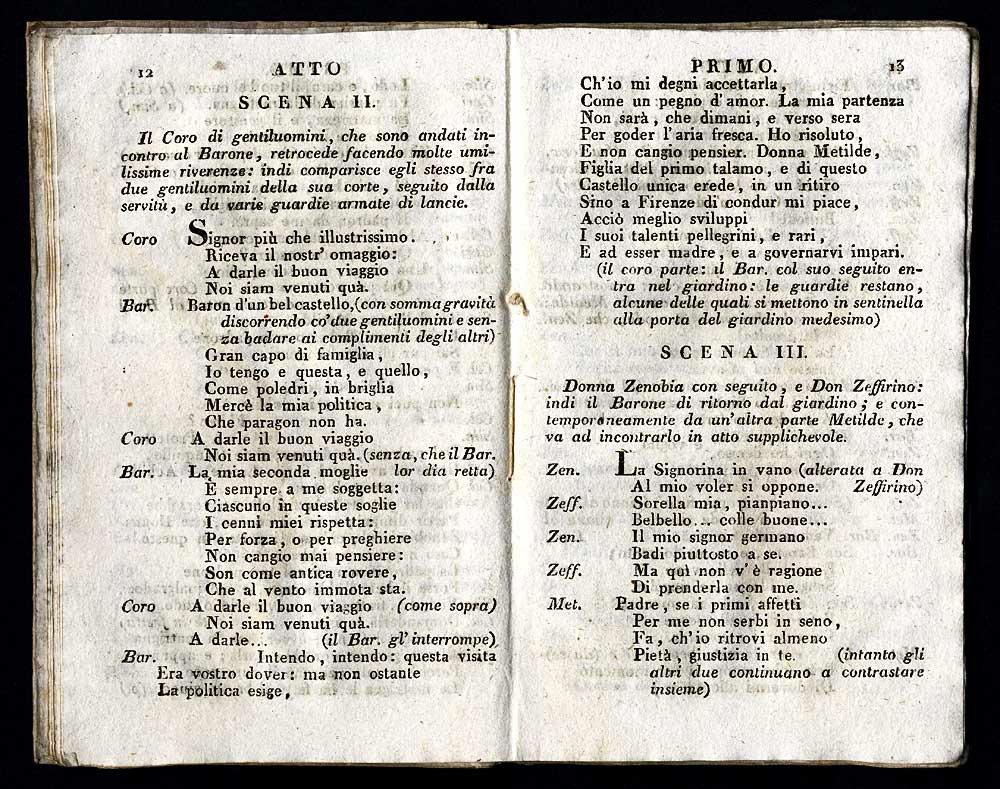 12 ATTO
SCENA II.
Il Coro di gentiluomini, che sono andati in-
contro al Barone, retrocede facendo molte umi-
lissime riverenze: indi comparisce egli stesso fra
due gentiluomini della sua corte, seguito dalla
servitù, e da varie guardie armate di lancie.
Coro Signor più che illustrissimo.
Riceva il nostr' omaggio:
A darle il buon viaggio
Noi siam venuti quà.
Bar. Baron d'un bel castello,(con somma gravità
discorrendo co' due gentiluomini e sen-
za badare ai complimenti degli altri)
Gran capo di famiglia,
Io tengo e questa, e quello,
Come poledri, in briglia
Mercè la mia politica,
Che paragon non ha.
Coro A darle il buon viaggio
Noi siam venuti quà. (senza, che il Bar.
Bar. La mia seconda moglie lor dia retta)
E sempre a me soggetta:
Ciascuno in queste soglie
I cenni miei rispetta:
Per forza, o per preghiere
Non cangio mai pensiere:
Son come antica rovere,
Che al vento immota sta.
Coro A darle il buon viaggio (come sopra)
Noi siam venuti quà.
A darle... (il Bar. gl' interrompe)
Bar. Intendo, intendo: questa visita
Era vostro dover: ma non ostante
La politica esige,
PRIMO. 13
Ch'io mi degni accettarla,
Come un pegno d'amor. La mia partenza
Non sarà, che dimani, e verso sera
Per goder l'aria fresca. Ho risoluto,
E non cangio pensier. Donna Metilde,
Figlia del primo talamo, e di questo
Castello unica erede, in un ritiro
Sino a Firenze di condur mi piace,
Acciò meglio sviluppi
I suoi talenti pellegrini, e rari,
E ad esser madre, e a governarvi impari.
(il coro parte: il Bar. col suo seguito en-
tra nel giardino: le guardie restano,
alcune delle quali si mettono in sentinella
alla porta del giardino medesimo)
SCENA III.
Donna Zenobia con seguito, e Don Zeffirino:
indi il Barone di ritorno dal giardino; e con-
temporaneamente da un'altra parte Metilde, che
va ad incontrarlo in atto supplichevole.
Zen. La Signorina in vano (alterata a Don
Al mio voler si oppone. Zeffirino)
Zeff. Sorella mia, pianpiano...
Belbello... colle buone...
Zen. Il mio signor germano
Badi piuttosto a se.
Zeff. Ma quì non v' è ragione
Di prenderla con me.
Met. Padre, se i primi affetti
Per me non serbi in seno,
Fa, ch'io ritrovi almeno
Pietà, giustizia in te. (intanto gli
altri due continuano a contrastare
insieme)